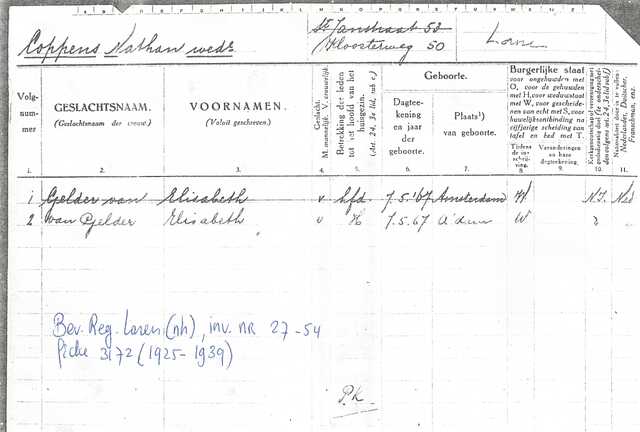 St. Janstraat 53
Coppens Nathan wede Kloosterweg 50 Laren
Volg-
num-
mer
GESLACHTSNAAM.
(Geslachtsnaam der vrouw.)
VOORNAMEN.
(Voluit geschreven.)
Geslacht.
M. mannelijk, V. vrouwelijk.
Betrekking der leden
tot het hoofd van het
huisgezin.
(Art. 24, 3e lid, sub c.)
Geboorte.
Dagtee-
kening
en jaar
der
geboorte.
Plaats¹)
van geboorte.
Burgerlijke staat
voor ongehuwden met
O, voor de gehuwden
met H, voor weduwstaat
met W, voor gescheide-
nen van echt met S, voor
huwelijksontbinding na
vijfjarige scheiding van
tafel en bed met T.
Tijdens
de in-
schrij-
ving.
Veranderingen
en hare
dagteekening.
Nederlander, Duitscher,
Franschman, enz.
1. 2. 3. 4. 5. 6. 7. 8. 9. 10. 11.
1 Gelder van Elisabeth v hfd. 7.5.'67 Amsterdam W N.I. Ned
2 van Gelder Elisabeth v H 7.5.67 A'dam W 2
Bev. Reg. Laren (nh), inv. nr 27-54
fiche 3172 (1925-1939)
P.K.